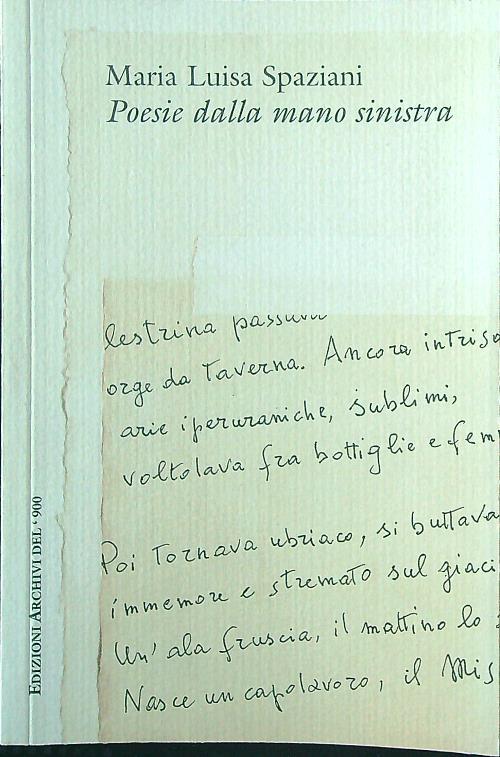 Maria Luisa Spaziani
Poesie dalla mano sinistra
lestrina passava
orge da Taverna. Ancora intriso
arie iperuraniche, sublimi,
voltolava fra bottiglie e fem
Poi Tornava ubriaco, si buttava
immemore e stremato sul giaci
Un' ala fruscia, il mattino lo
Nasce un capolavoro, il Mis
EDIZIONI ARCHIVI DEL '900